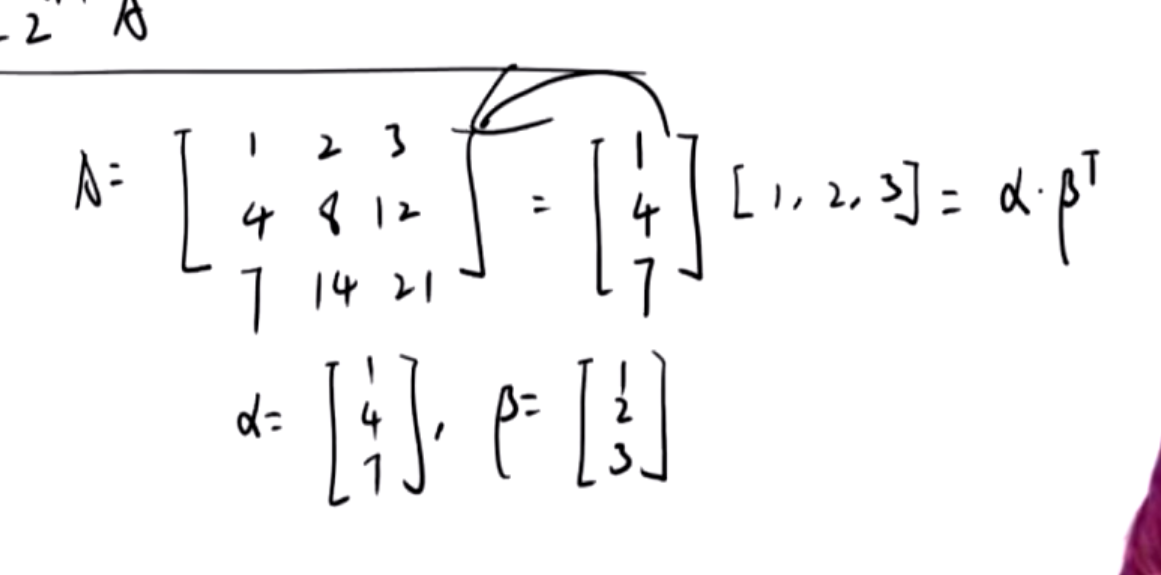 -2ⁿ⁻¹ A
A= [ 1 2 3
4 8 12
7 14 21 ] = [ 1
4
7 ] [1, 2, 3] = α·βᵀ
α= [ 1
4
7 ], β= [ 1
2
3 ]